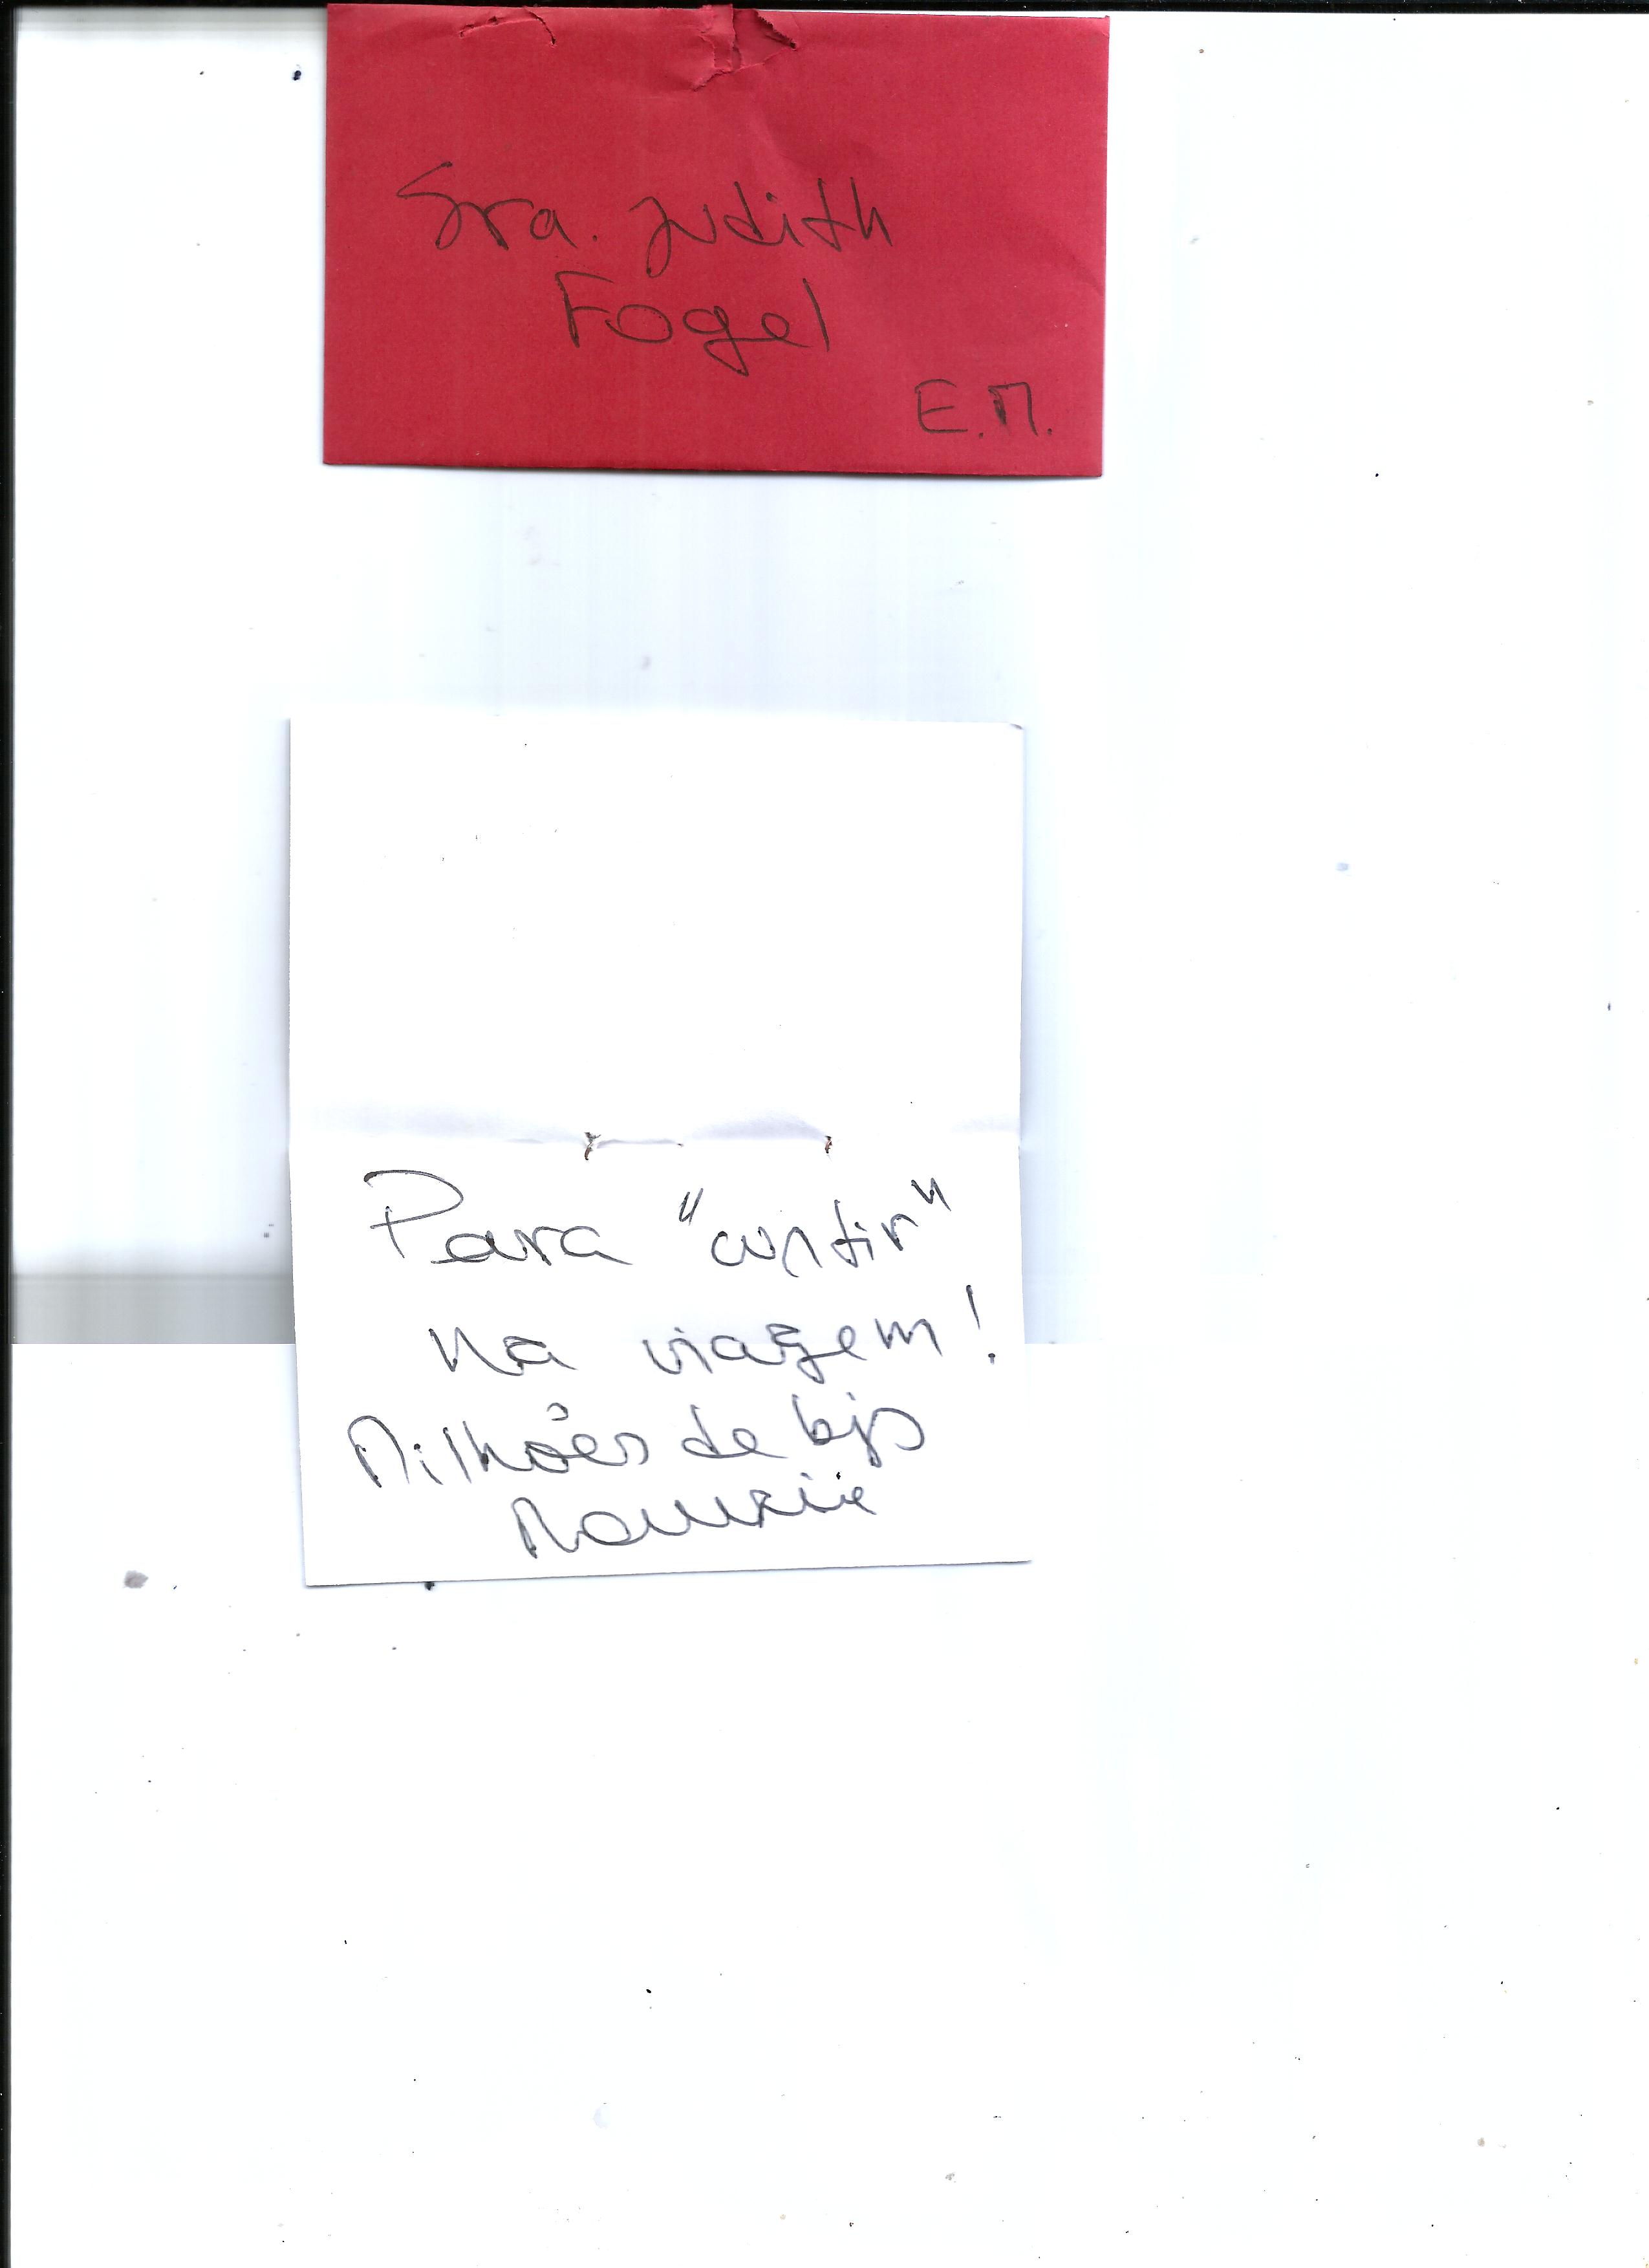 Sra. Judith
Fogel
E.M.
Para "curtir"
na viagem!
Milhões de bjs